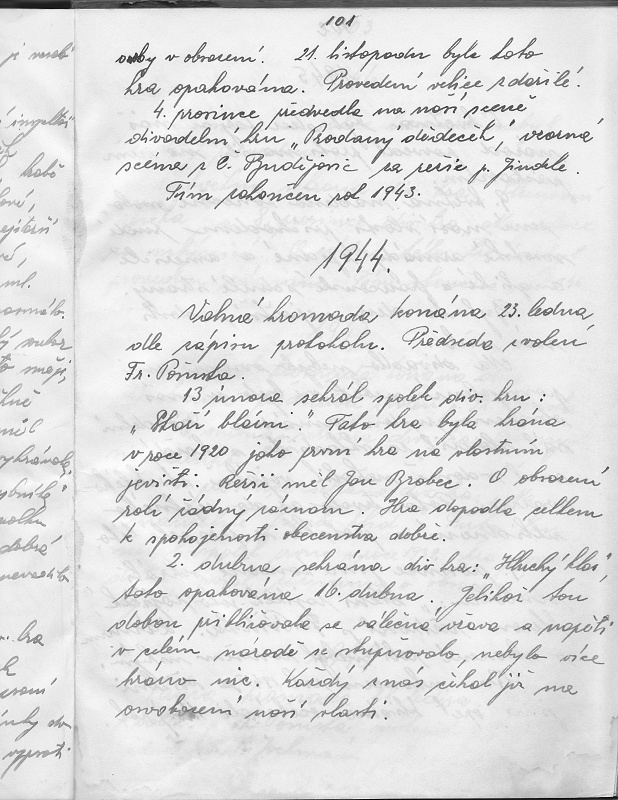 101
osoby v obsazení. 21. listopadu byla tato
hra opakována. Provedení velice zdařilé.
4. prosince předvedla na naší scéně
divadelní hru „Prodaný dědeček", vzorná
scéna z Č. Budějovic za režie p. Jindrle.
Tím zakončen rok 1943.
1944.
Valná hromada konána 23. ledna,
dle zápisu protokolu. Předseda zvolen
Fr.
13 února sehrál spolek div. hru :
„Staří blázni." Tato hra byla hrána
v roce 1920 jako první hra na vlastním
jevišti. Režii měl Jan Brabec. O obsazení
rolí žádný záznam. Hra dopadla celkem
k spokojenosti obecenstva dobře.
2. dubna sehrána div. hra: „Hluchý hlas",
tato opakována 16. dubna. Jelikož tou
dobou přibližovala se válečná vřava a napětí
v celém národě se stupňovalo, nebylo více
hráno nic. Každý z nás čekal již na
osvobození naší vlasti.